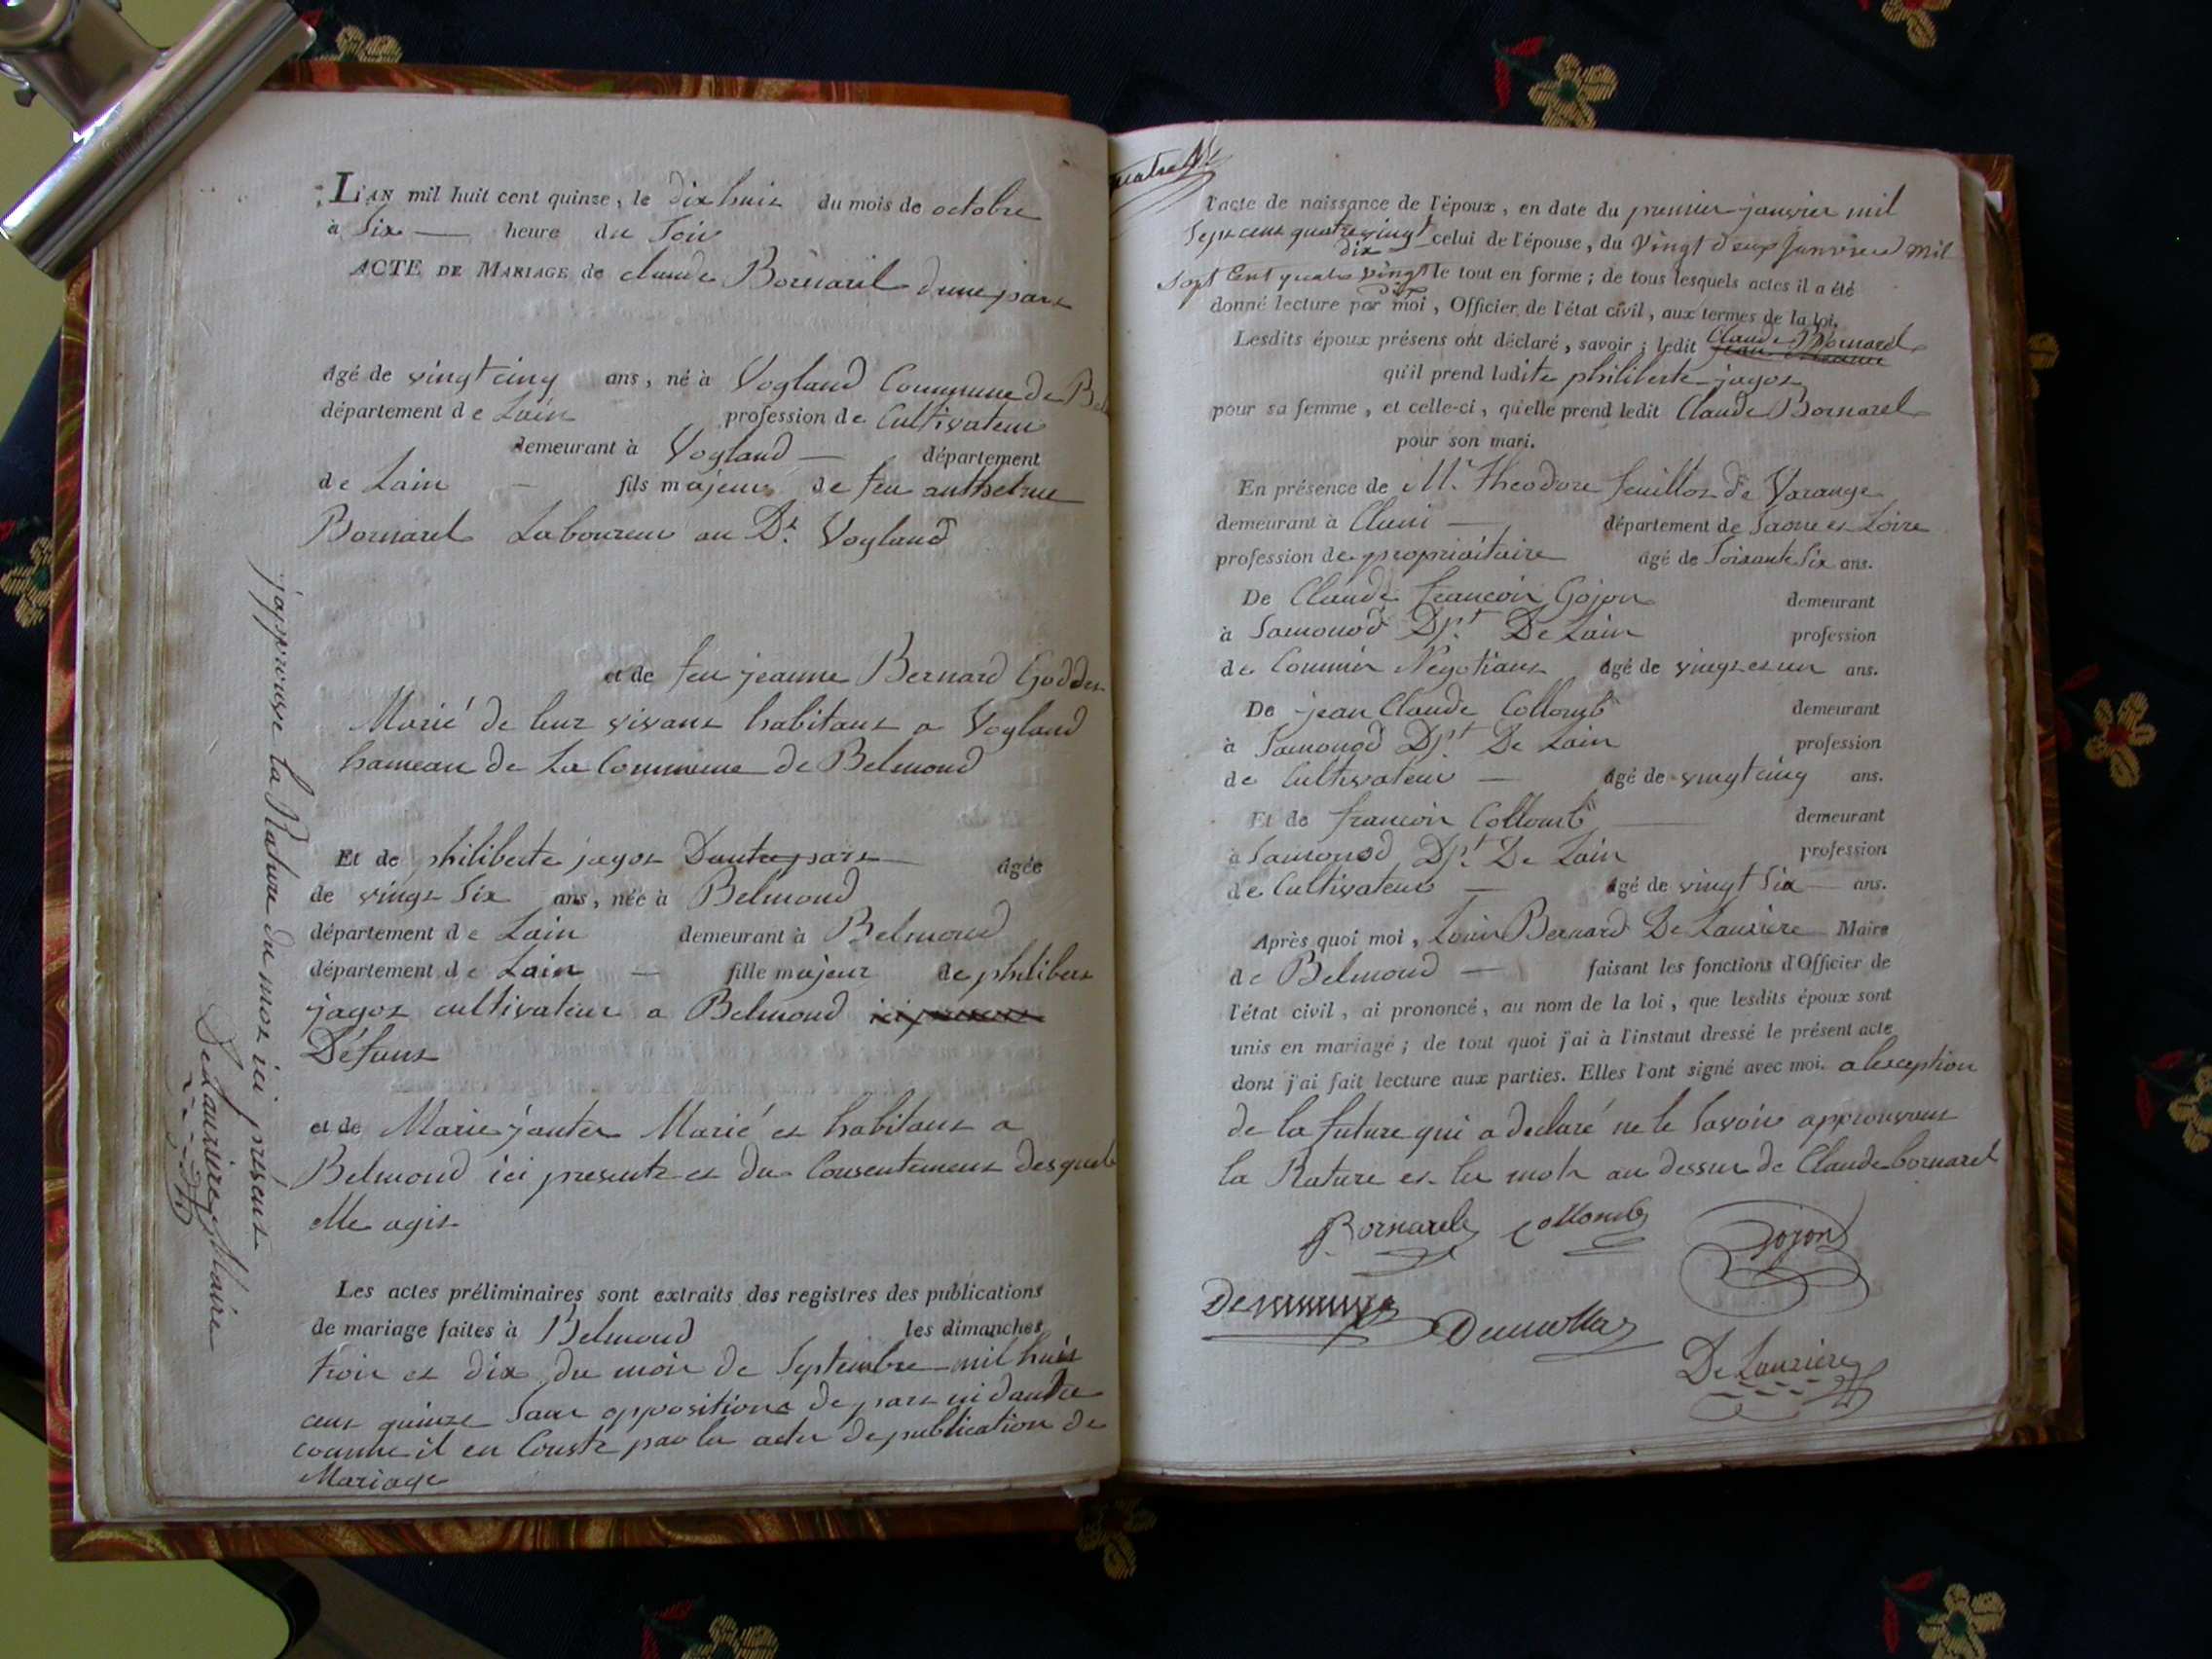 L'AN mil huit cent quinze, le dix huit du mois de octobre
à Six — heure du Soir
ACTE DE MARIAGE de claude Bornarel dune part
âgé de vingt cinq ans, né à Vogland Commune de Bel
département de Lain profession de Cultivateur
demeurant à Vogland — département
de Lain fils majeur de feu anthelme
Bornarel Laboureur au Dt. Vogland
et de feu jeanne Bernard Goddet
Marié de leur vivant habitant a Vogland
hameau de La Commune de Belmond
Et de philiberte jagot Dautre part âgée
de vingt Six ans, née à Belmond
département de Lain demeurant à Belmond
département de Lain — fille majeur de philibert
jagot cultivateur a Belmond
Défunt
et de Marie jantet Marié et habitant a
Belmond ici presents et du Consentement desquels
elle agit
Les actes préliminaires sont extraits des registres des publications
de mariage faites à Belmond les dimanches
trois et dix du mois de Septembre mil huit
cent quinze Sans oppositions de part ni dautre
comme il en Conste par les actes de publication de
Mariage
j'approuve la Rature du mot ici présent
DeLauziere Maire
l'acte de naissance de l'époux, en date du premier janvier mil
Sept cent quatre vingt celui de l'épouse, du Vingt deux Janvier mil
dix
Sept Cent quatre vingt le tout en forme; de tous lesquels actes il a été
dix
donné lecture par moi, Officier de l'état civil, aux termes de la loi.
Claude Bornarel
Lesdits époux présens ont déclaré, savoir; ledit
qu'il prend ladite philiberte jagot
pour sa femme, et celle-ci, qu'elle prend ledit Claude Bornarel
pour son mari.
En présence de Mr. Theodore feuillot de Varange
demeurant à Cluni — département de Saone et Loire
profession de propriaitaire âgé de Soixante Six ans.
De Claude francois Gojon demeurant
à Samonod Dpt. De Lain profession
de Commis Negotiant âgé de vingt et un ans.
De jean Claude Collomb demeurant
à Samonod Dpt. De Lain profession
de Cultivateur — âgé de vingt cinq ans.
Et de francois Collomb — demeurant
à Samonod Dpt. De Lain profession
de Cultivateur — âgé de vingt Six — ans.
Après quoi moi, Louis Bernard De Lauziere Maire
de Belmond — faisant les fonctions d'Officier de
l'état civil, ai prononcé, au nom de la loi, que lesdits époux sont
unis en mariage; de tout quoi j'ai à l'instant dressé le présent acte
dont j'ai fait lecture aux parties. Elles l'ont signé avec moi. a lexception
de la future qui a declaré ne le Savoir approuvant
la Rature et les mots au dessus de Claude bornarel
Bornarel Collomb Gojon
De Lauziere